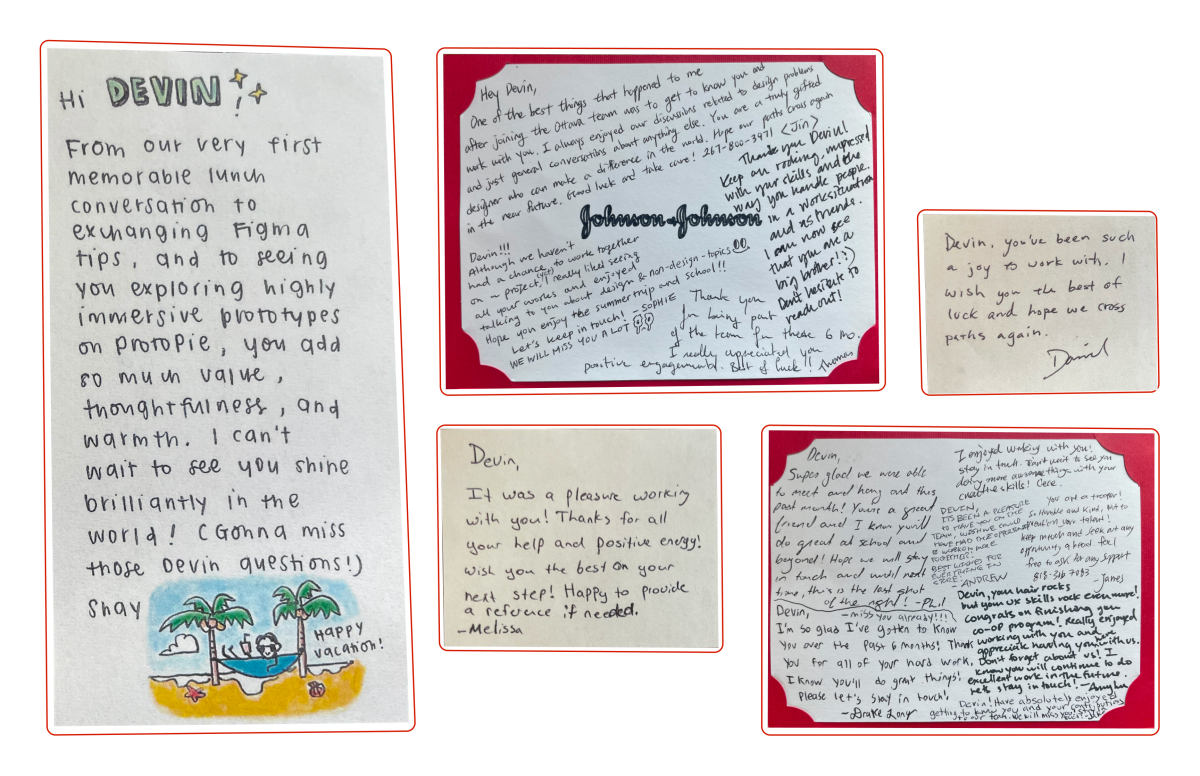 Hi DEVIN!
From our very first
memorable lunch
conversation to
exchanging Figma
tips, and to seeing
you exploring highly
immersive prototypes
on ProtoPie, you add
so much value,
thoughtfulness, and
warmth. I can't
wait to see you shine
brilliantly in the
world! (Gonna miss
those Devin questions!)
Shay
HAPPY
VACATION!
Hey Devin,
One of the best things that happened to me
after joining the Ottava team was to get to know you and
work with you. I always enjoyed our discussions related to design problems
and just general conversations about anything else. You are a truly gifted
designer who can make a difference in the world. Hope our paths cross again
in the near future. Good luck and take care! 267-800-3971 <Jin>
Thank you Devin!
Keep on rocking, impressed
with your skills and the
way you handle people.
in a work situation
and as friends.
I can now see
that you are a
big brother! :)
Don't hesitate to
reach out!
Johnson & Johnson
Devin!!!
Although we haven't
had a chance to work together
on ~ project, (yet) I really liked seeing
all your works and enjoyed
talking to you about design & non-design-topics
Hope you enjoy the summer trip and school!!
Let's keep in touch! - SOPHIE
WE WILL MISS YOU A LOT
Thank you
for being part
of the team for these 6 mo.
I really appreciated you
positive engagement. Best of luck!! Thomas
Devin, you've been such
a joy to work with. I
wish you the best of
luck and hope we cross
paths again.
Daniel
Devin,
It was a pleasure working
with you! Thanks for all
your help and positive energy!
Wish you the best on your
next step! Happy to provide
a reference if needed.
-Melissa
Devin,
Super glad we were able
to meet and hang out this
past month! You're a great
friend and I know you'll
do great at school and
beyond! Hope we will stay
in touch and until next
time, this is the last shot
of the night! -Phil
-miss you already!!!
I enjoyed working with you!
stay in touch. Can't wait to see you
doing more awesome things with your
creative skills! Cere.
DEVIN,
IT'S BEEN A PLEASURE
TO HAVE YOU ON THE
TEAM, WISH WE COULD
HAVE HAD THE OPPORTUNITY
TO WORK ON MORE
TOGETHER!
BEST WISHES FOR
EVERYTHING IN
STORE!
-ANDREW
You are a trooper!
So Humble and Kind, not to
mention your talent!
Keep in touch and seek out any
opportunity ahead feel
free to ask for any support
-James
Devin,
I'm so glad I've gotten to know
you over the past 6 months! Thank
you for all of your hard work,
I know you'll do great things!
Please let's stay in touch!
-Drake Long
Devin, your hair rocks
but your UX skills rock even more!
congrats on finishing you
co-op program! Really enjoyed
working with you and
appreciate having you here with us.
Don't forget about us! I
know you will continue to do
excellent work in the future.
Let's stay in touch! -Amy Lu
Devin! Have absolutely enjoyed
getting to know you and your contributions
to our team. We will miss you